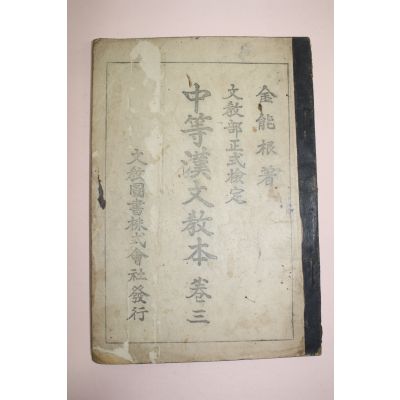 金能根 著
文敎部正式檢定
中等漢文敎本 卷三
文敎圖書株式會社 發行